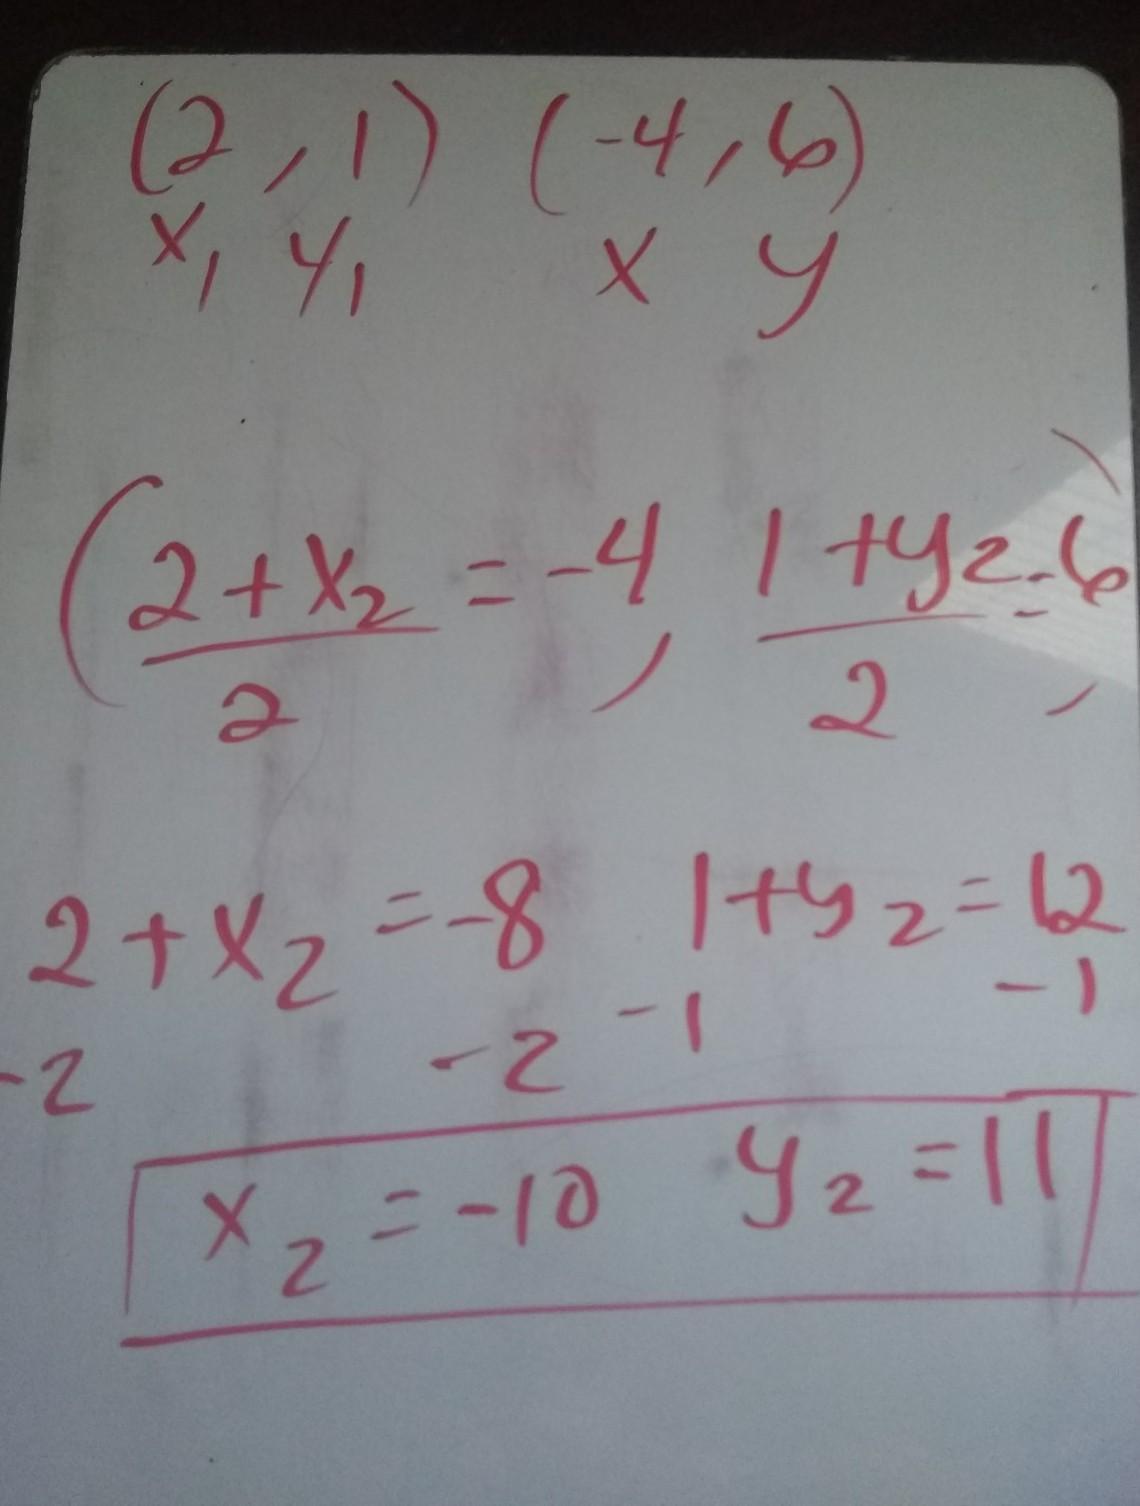 (2, 1) (-4, 6)
x₁ y₁ x y
(2+x₂ = -4, 1+y₂ = 6)
2 2
2+x₂ = -8 1+y₂ = 12
-2 -2 -1 -1
x₂ = -10 y₂ = 11